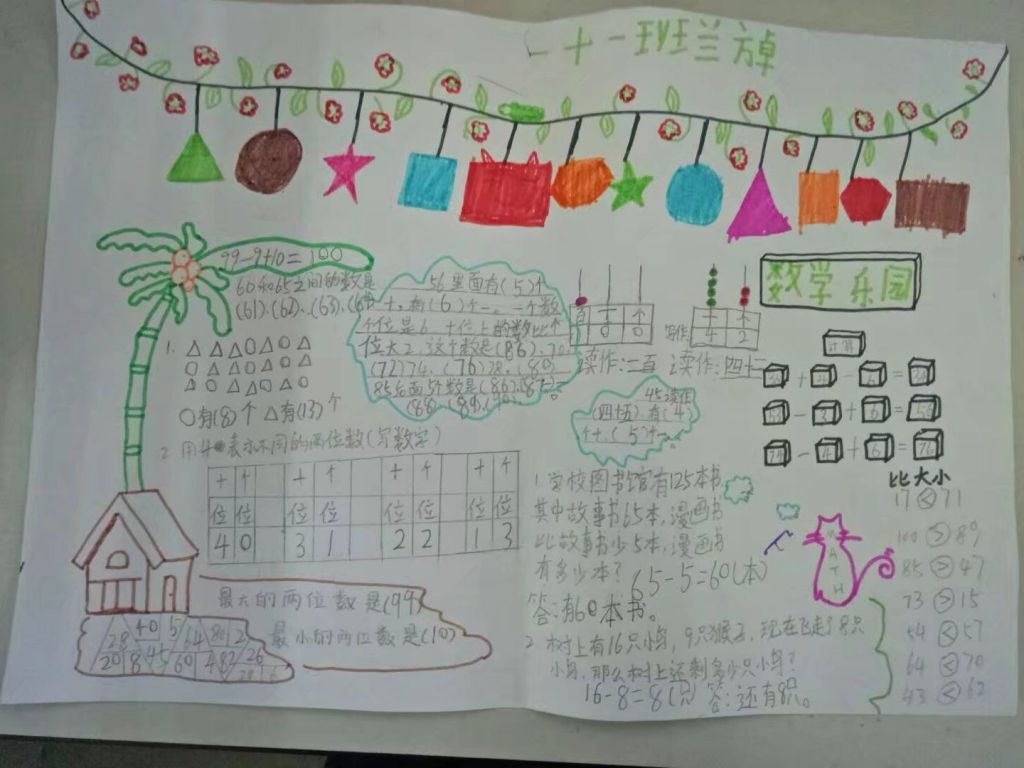 一十一班兰卓
99-9+10=100
60和65之间的数是
(61)、(62)、(63)、(64)
1.
○有(8)个 △有(13)个
2 用4●表示不同的两位数(写数字)
十 个 十 个 十 个 十 个
位 位 位 位 位 位 位 位
4 0 3 1 2 2 1 3
最大的两位数是(99)
最小的两位数是(10)
56里面有(5)个
十,有(6)个一。一个数
个位是6,十位上的数比个
位大2,这个数是(86)、70、
(72)74、(76)78、(80)
85后面5个数是(86)、(87)、
(88)(89)(90)。
百 十 个
0 0
写作:
十 个
4 2
读作:二百 读作:四十二
45读作
(四十五)有(4)
个十(5)个一
数学乐园
计算
比大小
17<71
100>89
85>47
73>15
54<57
64<70
43<62
MATH
1.学校图书馆有125本书
其中故事书65本,漫画书
比故事书少5本,漫画书
有多少本? 65-5=60(本)
答:有60本书。
2 树上有16只小鸟,9只猴子,现在飞走了8只
小鸟,那么树上还剩多少只小鸟?
16-8=8(只) 答:还有8只。